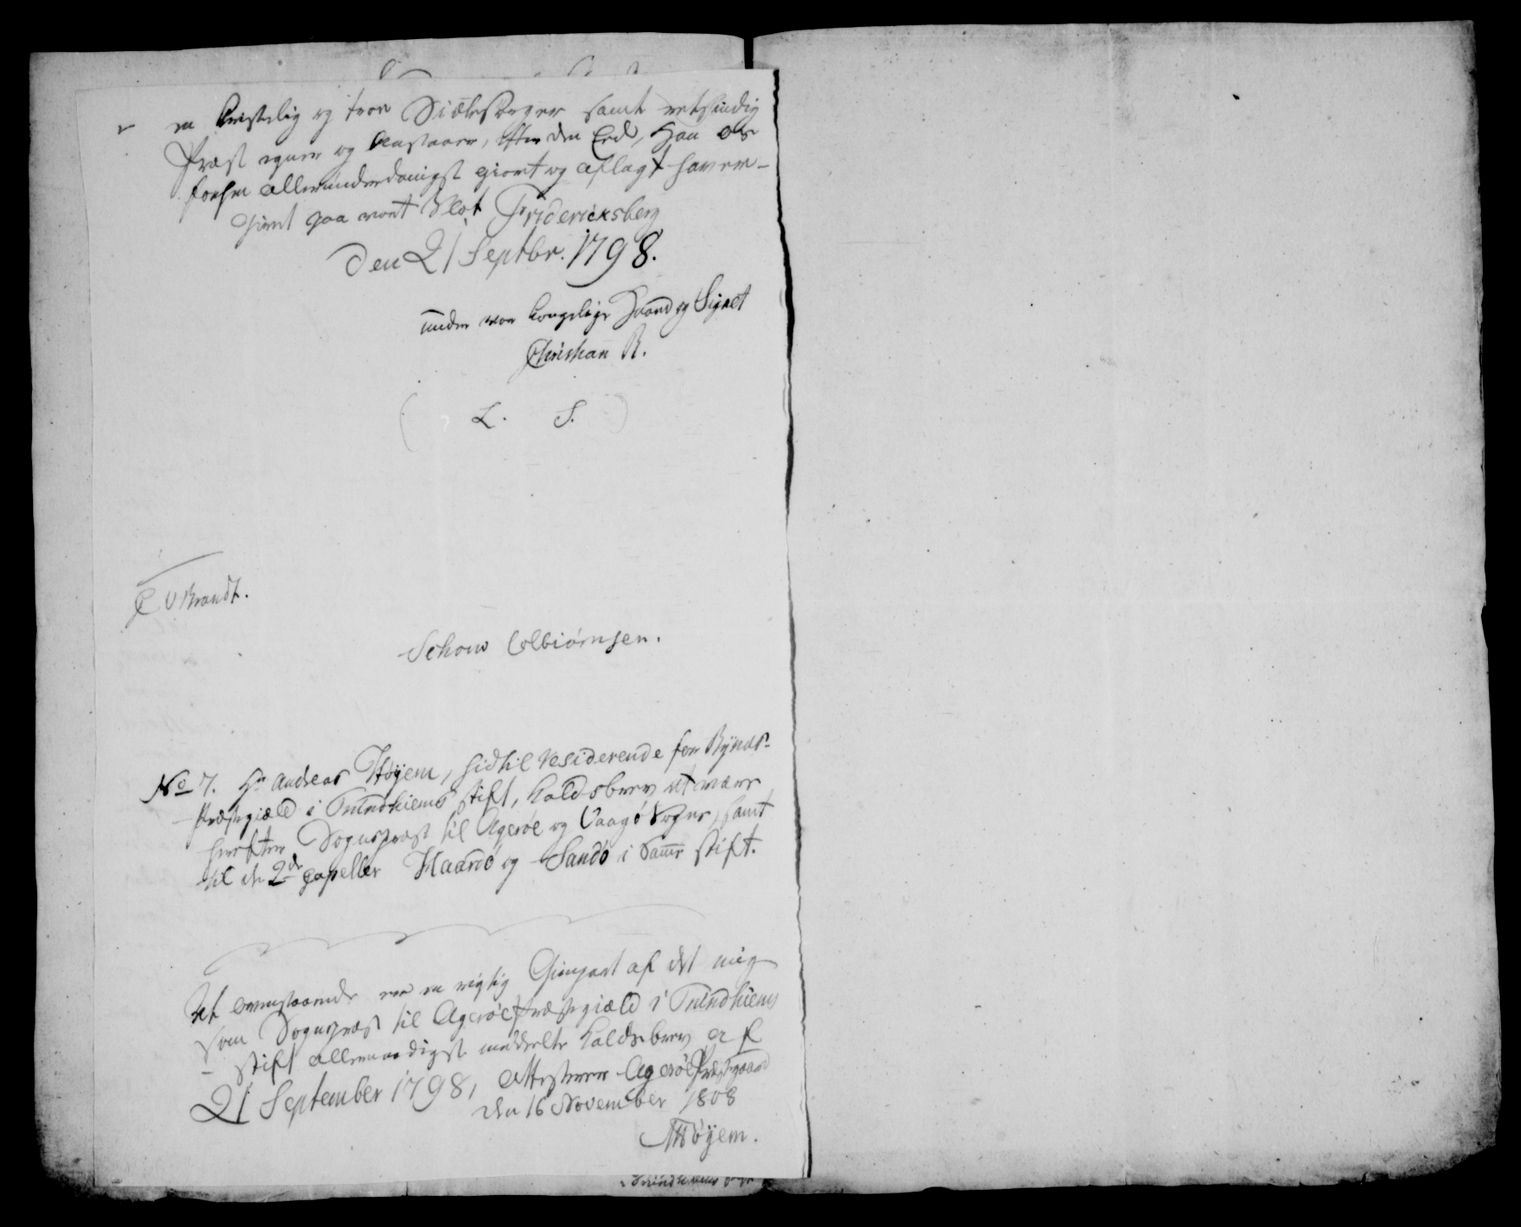 en Christelig og troe Siælesørger samt retsindig
Præst egner og anstaaer, efter den Eed, Han os
forhen allerunderdanigst giort og aflagt haver –
Givet paa vort Slot Fridericksberg
den 21 Septbr. 1798.
under vor Kongelige Haand og Signet
Christian R.
( L. S. )
C V Brandt.
Schow Colbiørnsen.
No 7. Hr Andreas Høyem, hidtil residerende for Rynds-
Præstegiæld i Trundhiems stift, Kaldsbrev at være
herefter Sogne præst til Agerøe og Vaagø Sogne, samt
til de 2de Capeller Haarøe og Sandø i samme stift.
At ovenstaaende er en rigtig Gienpart af det mig
som Sognepræst til Agerøe Præstegiæld i Trundhiems
stift allernaadigst meddeelte Kaldsbrev af
21 September 1798, attesterer Agerøe Præstegaard
den 16 November 1808
AHøyem.